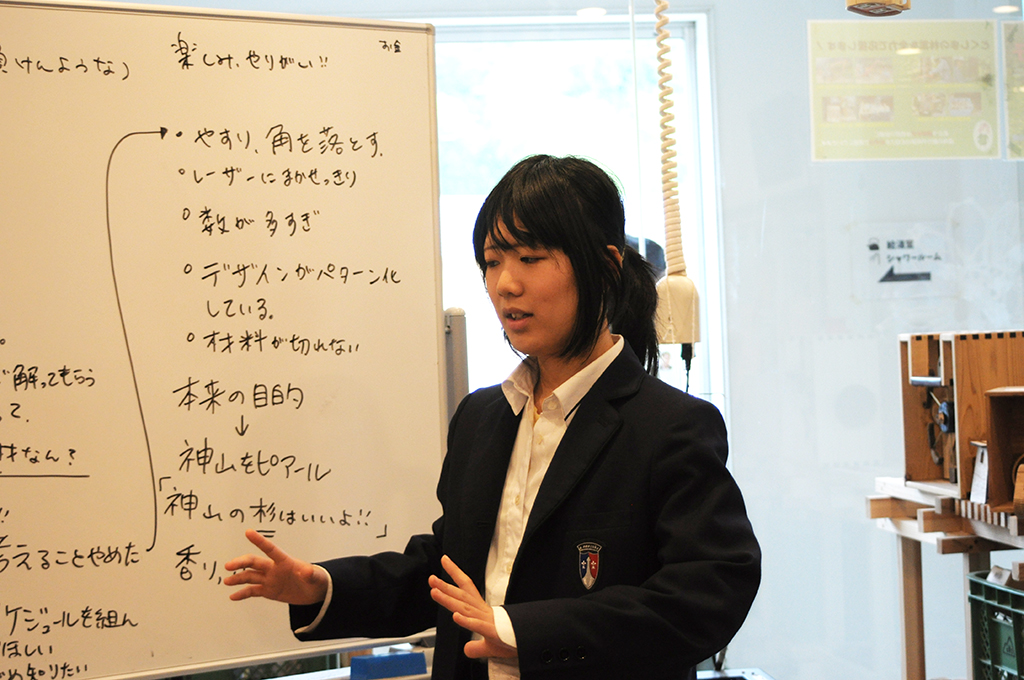 けんような)
楽しみ、やりがい!!
お金
・やすり、角を落とす。
・レーザーにまかせっきり
・数が多すぎ
・デザインがパターン化
している。
・材料が切れない
本来の目的
↓
神山をピアール
「神山の杉はいいよ!!」
香り、
解ってもらう
て、
材なん?
!!
考えることやめた
ケジュールを組ん
ほしい
め知りたい
給湯室
シャワールーム